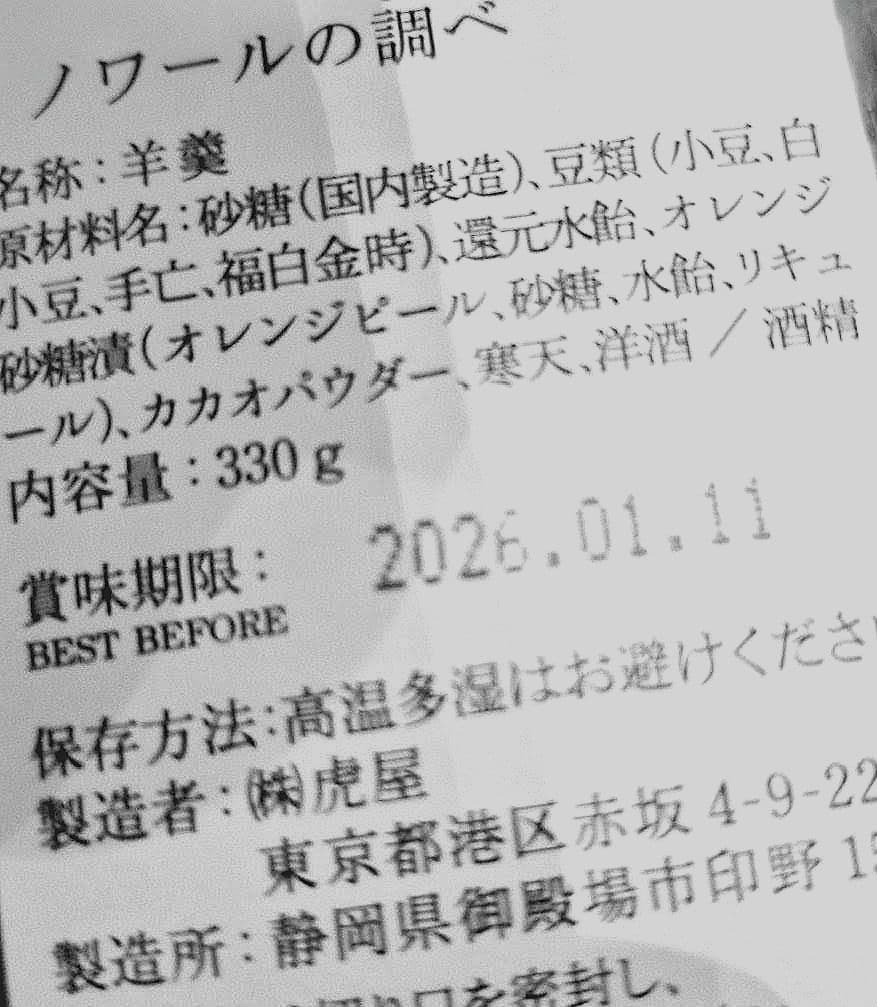 ノワールの調べ
名称：羊羹
原材料名：砂糖（国内製造）、豆類（小豆、白
小豆、手亡、福白金時）、還元水飴、オレンジ
砂糖漬（オレンジピール、砂糖、水飴、リキュ
ール）、カカオパウダー、寒天、洋酒／酒精
内容量：330 g
賞味期限： 2026.01.11
BEST BEFORE
保存方法：高温多湿はお避けくださ
製造者：㈱虎屋
東京都港区赤坂 4-9-22
製造所：静岡県御殿場市印野 1
り口を密封し、